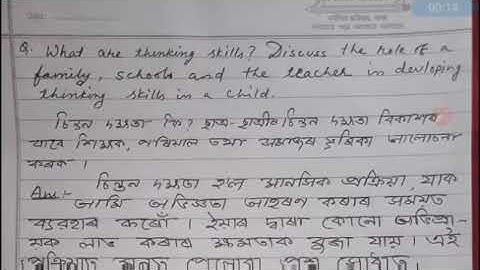 00:14
Q. What are thinking skills? Discuss the role of a
family, schools and the teacher in devloping
thinking skills in a child.
চিন্তন দক্ষতা কি? ছাত্ৰ-ছাত্ৰীৰ চিন্তন দক্ষতা বিকাশৰ
বাবে শিক্ষক, পৰিয়াল তথা সমাজৰ ভূমিকা আলোচনা
কৰক।
Ans:- চিন্তন দক্ষতা হ'ল মানসিক প্ৰক্ৰিয়া, যাক
আমি অভিজ্ঞতা আহৰণ কৰাৰ সময়ত
ব্যৱহাৰ কৰোঁ। ইয়াৰ দ্বাৰা কোনো অভিজ্ঞতা-
লাভ কৰাৰ ক্ষমতাক বুজা যায়। এই